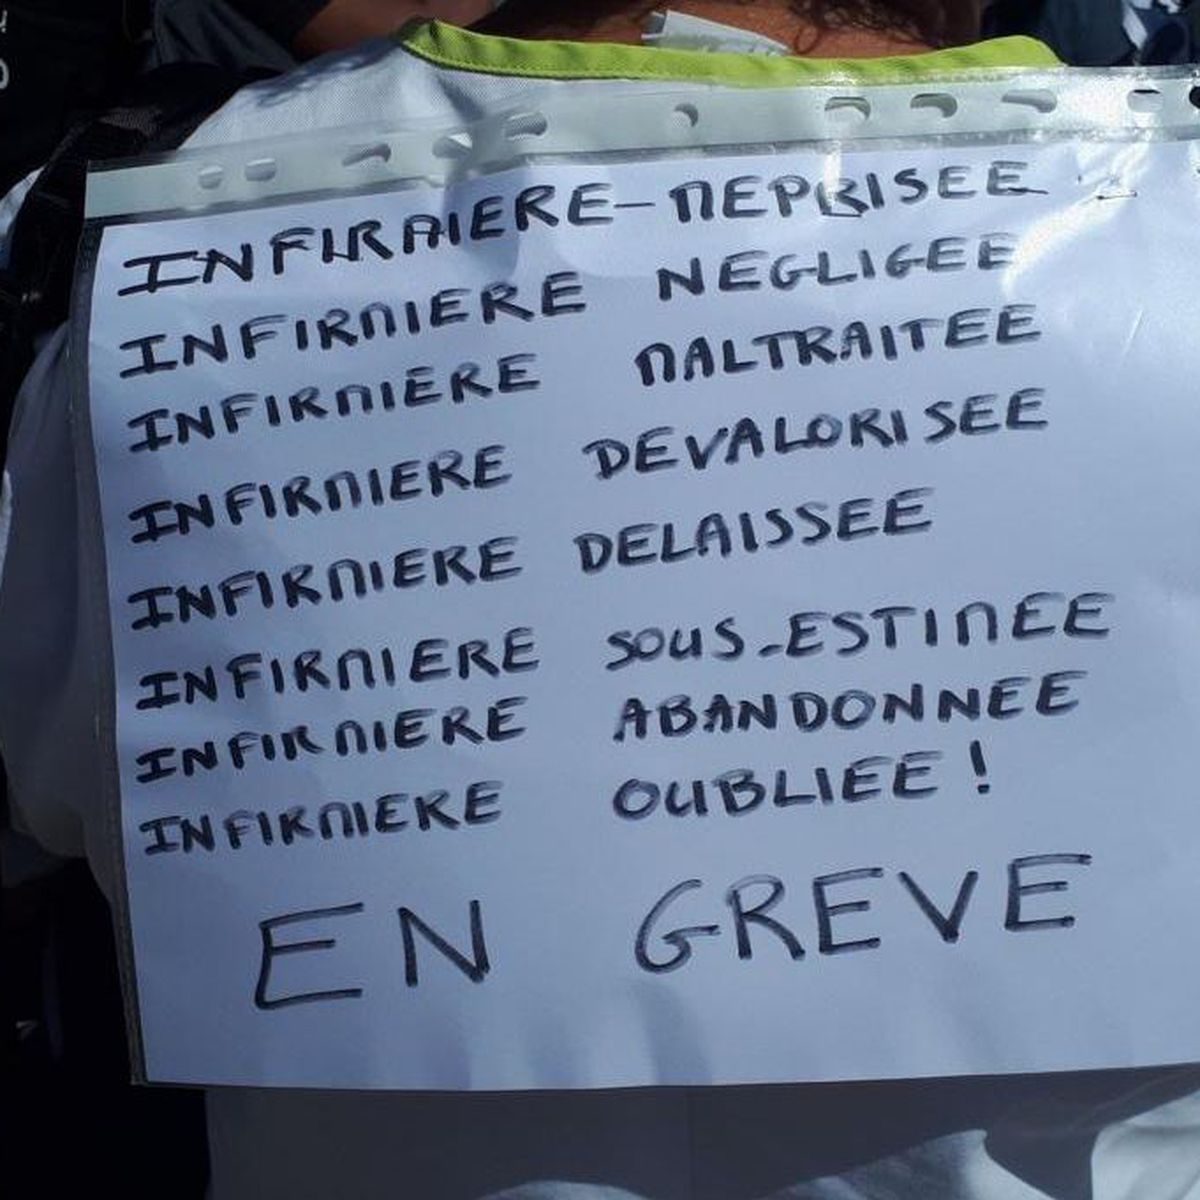 INFIRMIERE-MEPRISEE
INFIRMIERE NEGLIGEE
INFIRMIERE MALTRAITEE
INFIRMIERE DEVALORISEE
INFIRMIERE DELAISSEE
INFIRMIERE SOUS-ESTIMEE
INFIRMIERE ABANDONNEE
INFIRMIERE OUBLIEE !
EN GREVE